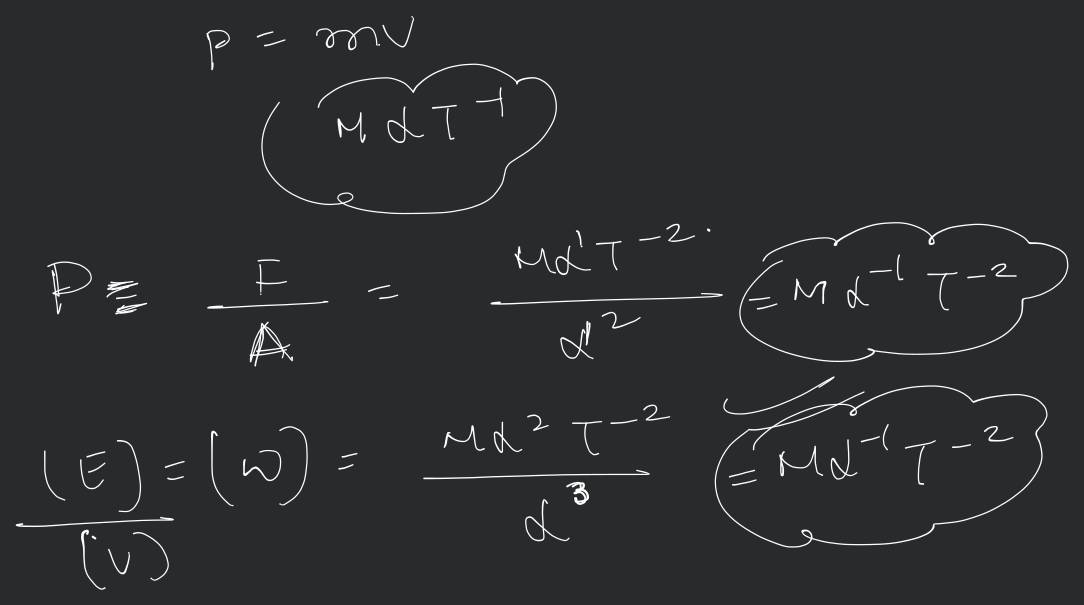 p = mv
M L T⁻¹
P = F/A = M L¹ T⁻² / L² = M L⁻¹ T⁻²
[E]/[V] = [W] = M L² T⁻² / L³ = M L⁻¹ T⁻²